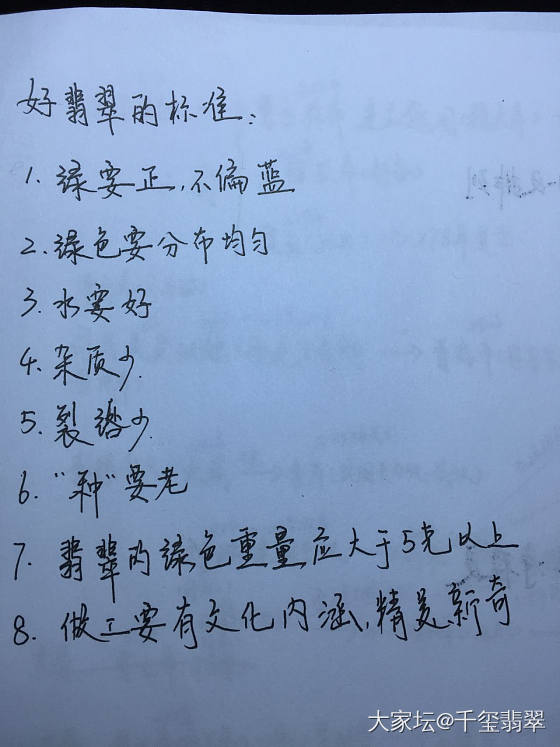 好翡翠的标准：
1. 绿要正，不偏蓝
2. 绿色要分布均匀
3. 水要好
4. 杂质少.
5. 裂绺少.
6. “种”要老
7. 翡翠的绿色重量应大于5克以上
8. 做工要有文化内涵，精美新奇
大家坛@千玺翡翠